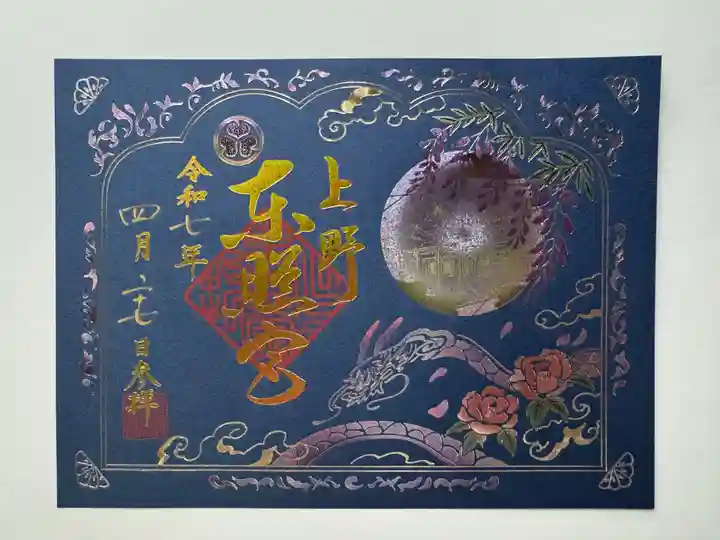 上野
東照宮
令和七年
四月二七日参拝